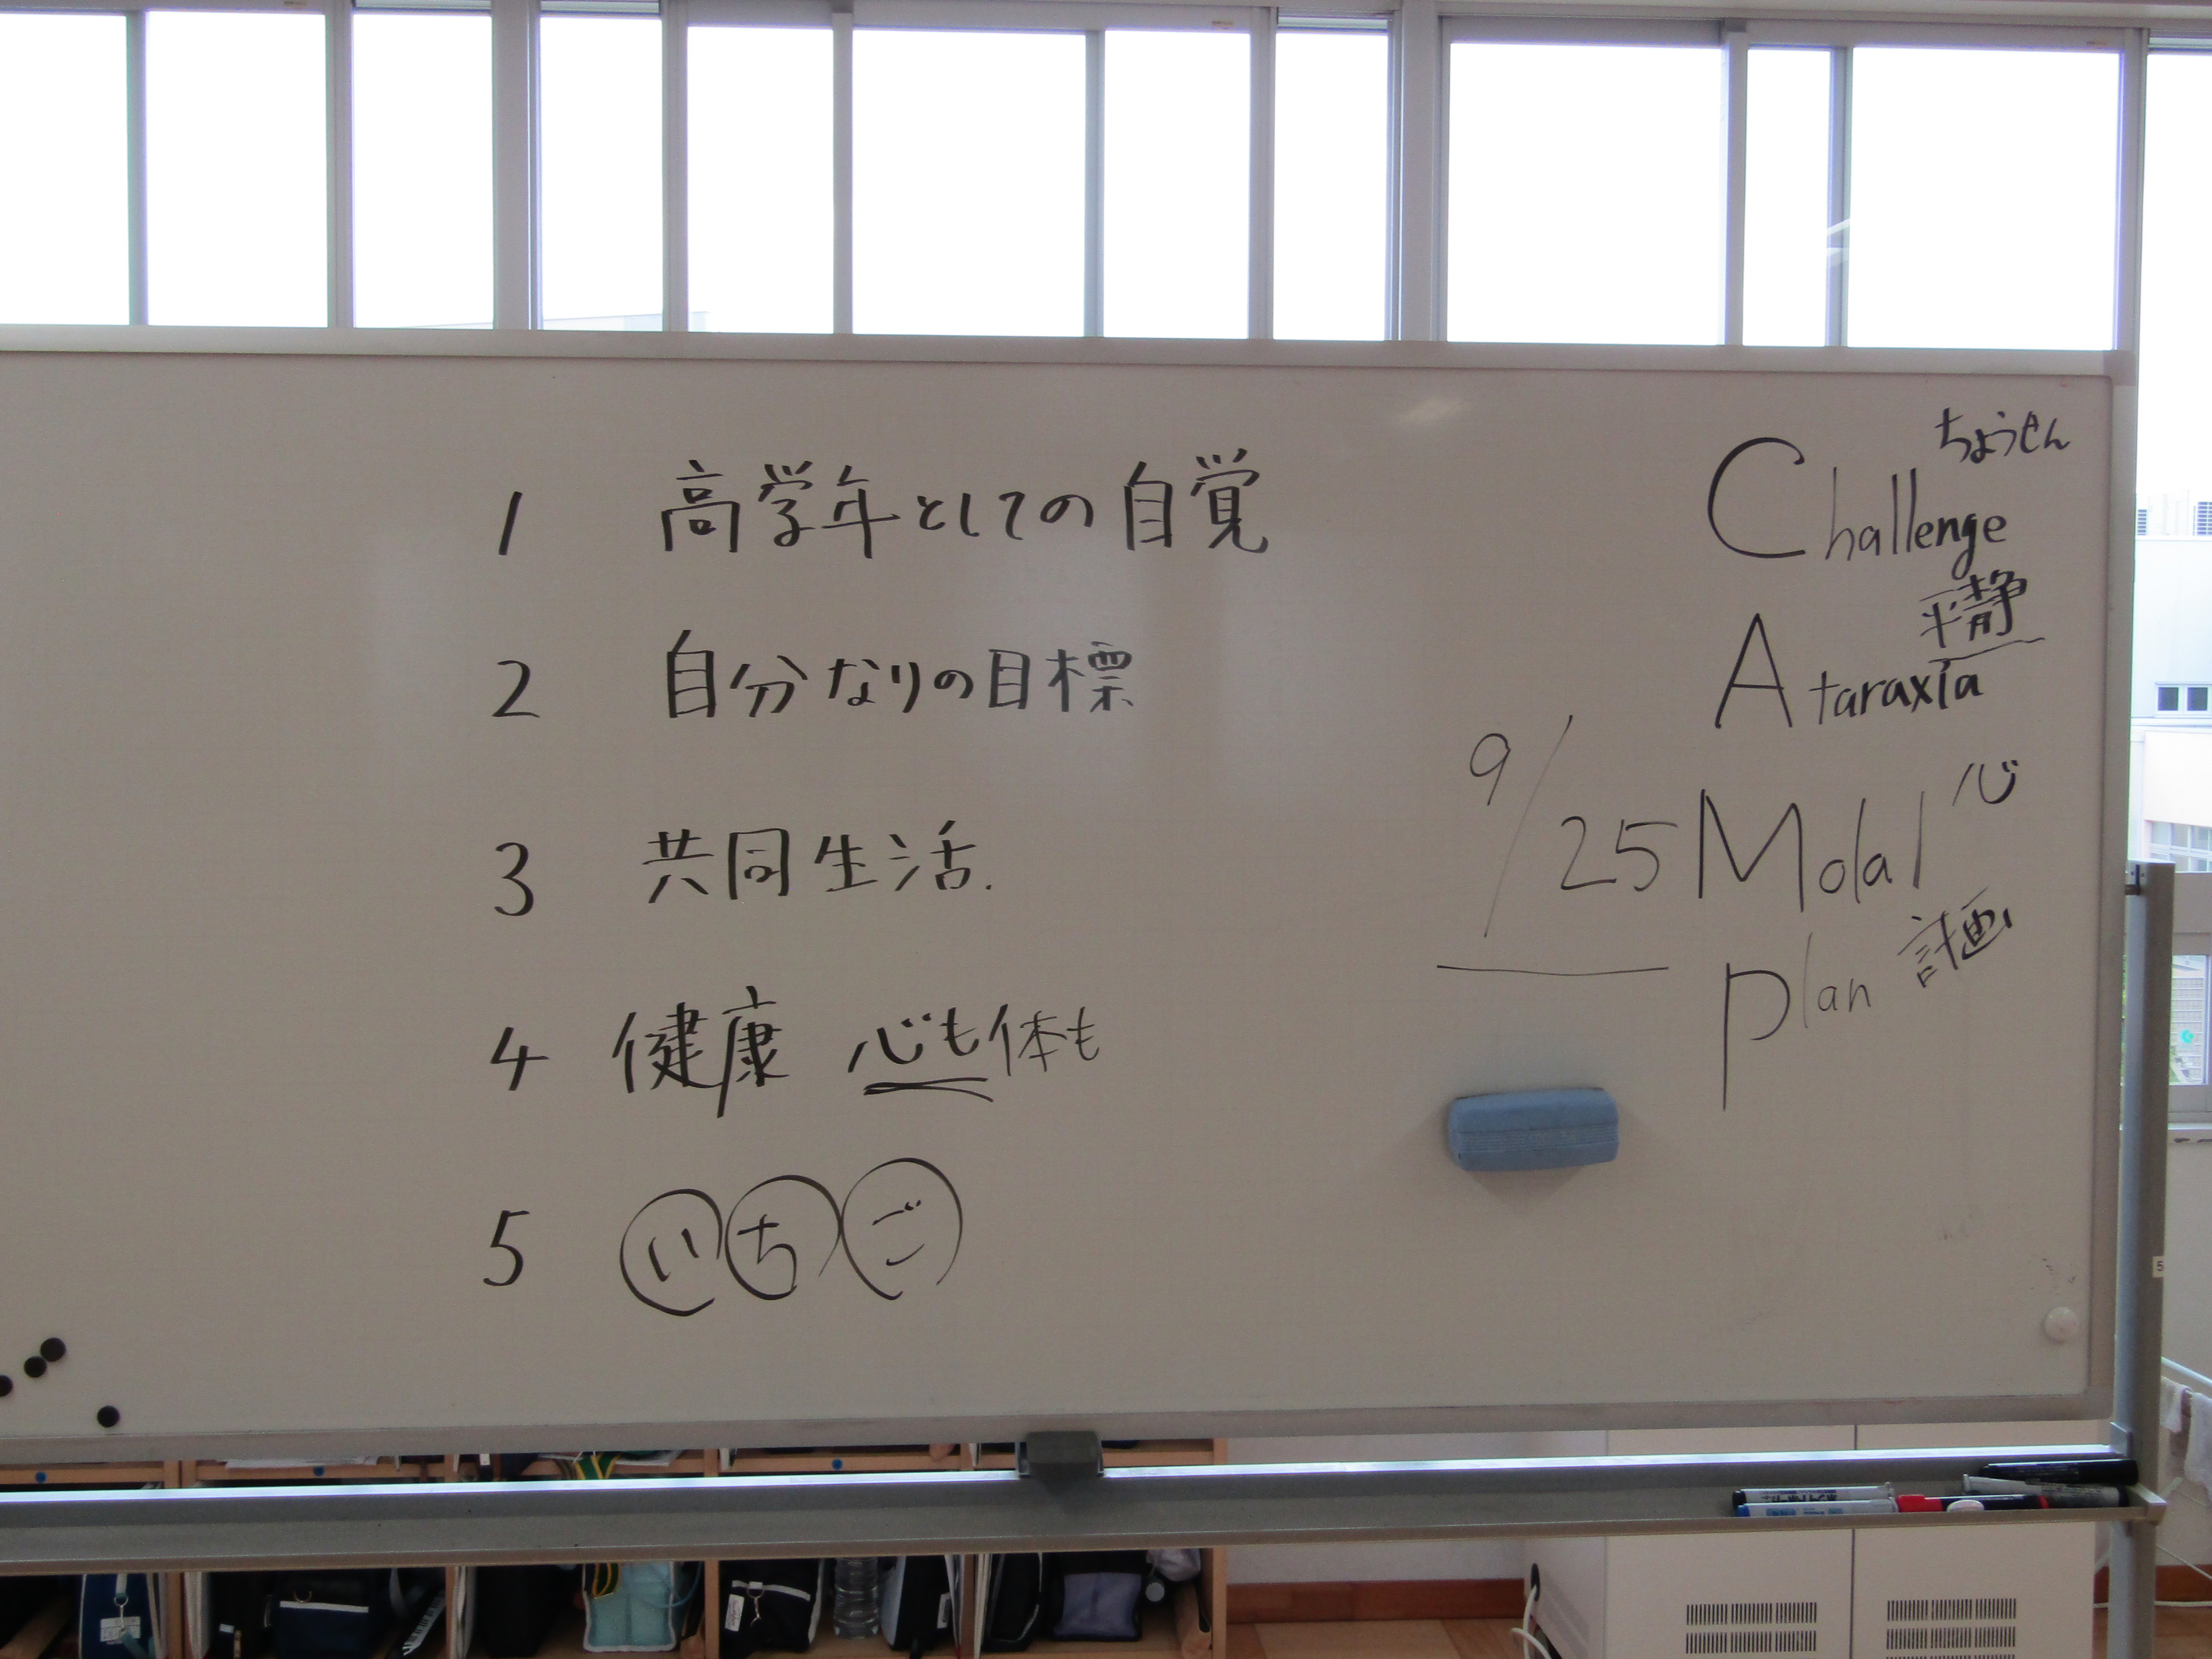 1 高学年としての自覚
2 自分なりの目標
3 共同生活.
4 健康 心も体も
5 いちご
ちょうせん
Challenge
平静
Ataraxia
心
9/25 Molal
計画
plan
5